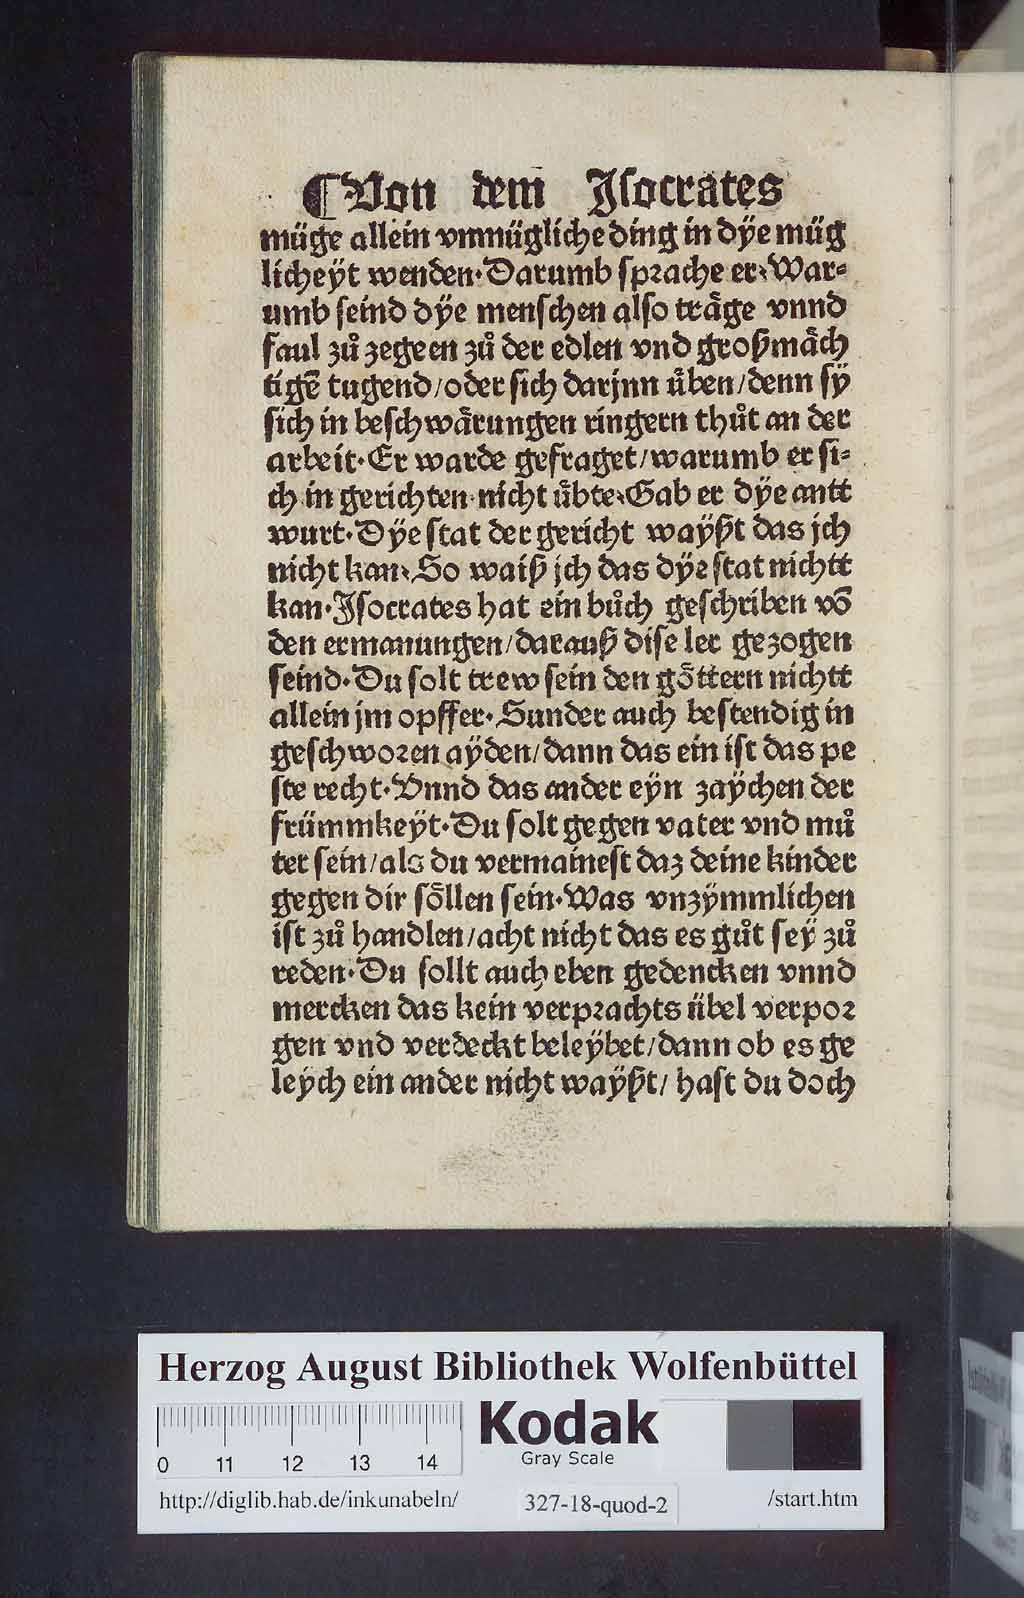 ¶Von dem Isocrates
müge allein vnmügliche ding in dÿe müg
licheÿt wenden· Darumb sprache er· War⸗
umb seind dÿe menschen also trӓge vnnd
faul zů zegeen zů der edlen vnd großmӓch
tigē tugend/oder sich darjnn üben/denn sÿ
sich in beschwӓrungen ringern thůt an der
arbeit· Er warde gefraget/warumb er si⸗
ch in gerichten nicht übte· Gab er dÿe antt
wurt· Dÿe stat der gericht waÿßt das jch
nicht kan· So waiß jch das dÿe stat nichtt
kan· Isocrates hat ein bůch geschriben vō
den ermanungen/darauß dise ler gezogen
seind· Du solt trew sein den göttern nichtt
allein jm opffer· Sunder auch bestendig in
geschworen aÿden/dann das ein ist das pe
ste recht· Vnnd das ander eÿn zaÿchen der
frümmkeÿt· Du solt gegen vater vnd mů
ter sein/als du vermainest daz deine kinder
gegen dir söllen sein· Was vnzÿmmlichen
ist zů handlen/acht nicht das es gůt seÿ zů
reden· Du sollt auch eben gedencken vnnd
mercken das kein verprachts übel verpor
gen vnd verdeckt beleÿbet/dann ob es ge
leÿch ein ander nicht waÿßt/ hast du doch
Herzog August Bibliothek Wolfenbüttel
Kodak
Gray Scale
0 11 12 13 14
http://diglib.hab.de/inkunabeln/ 327-18-quod-2 /start.htm